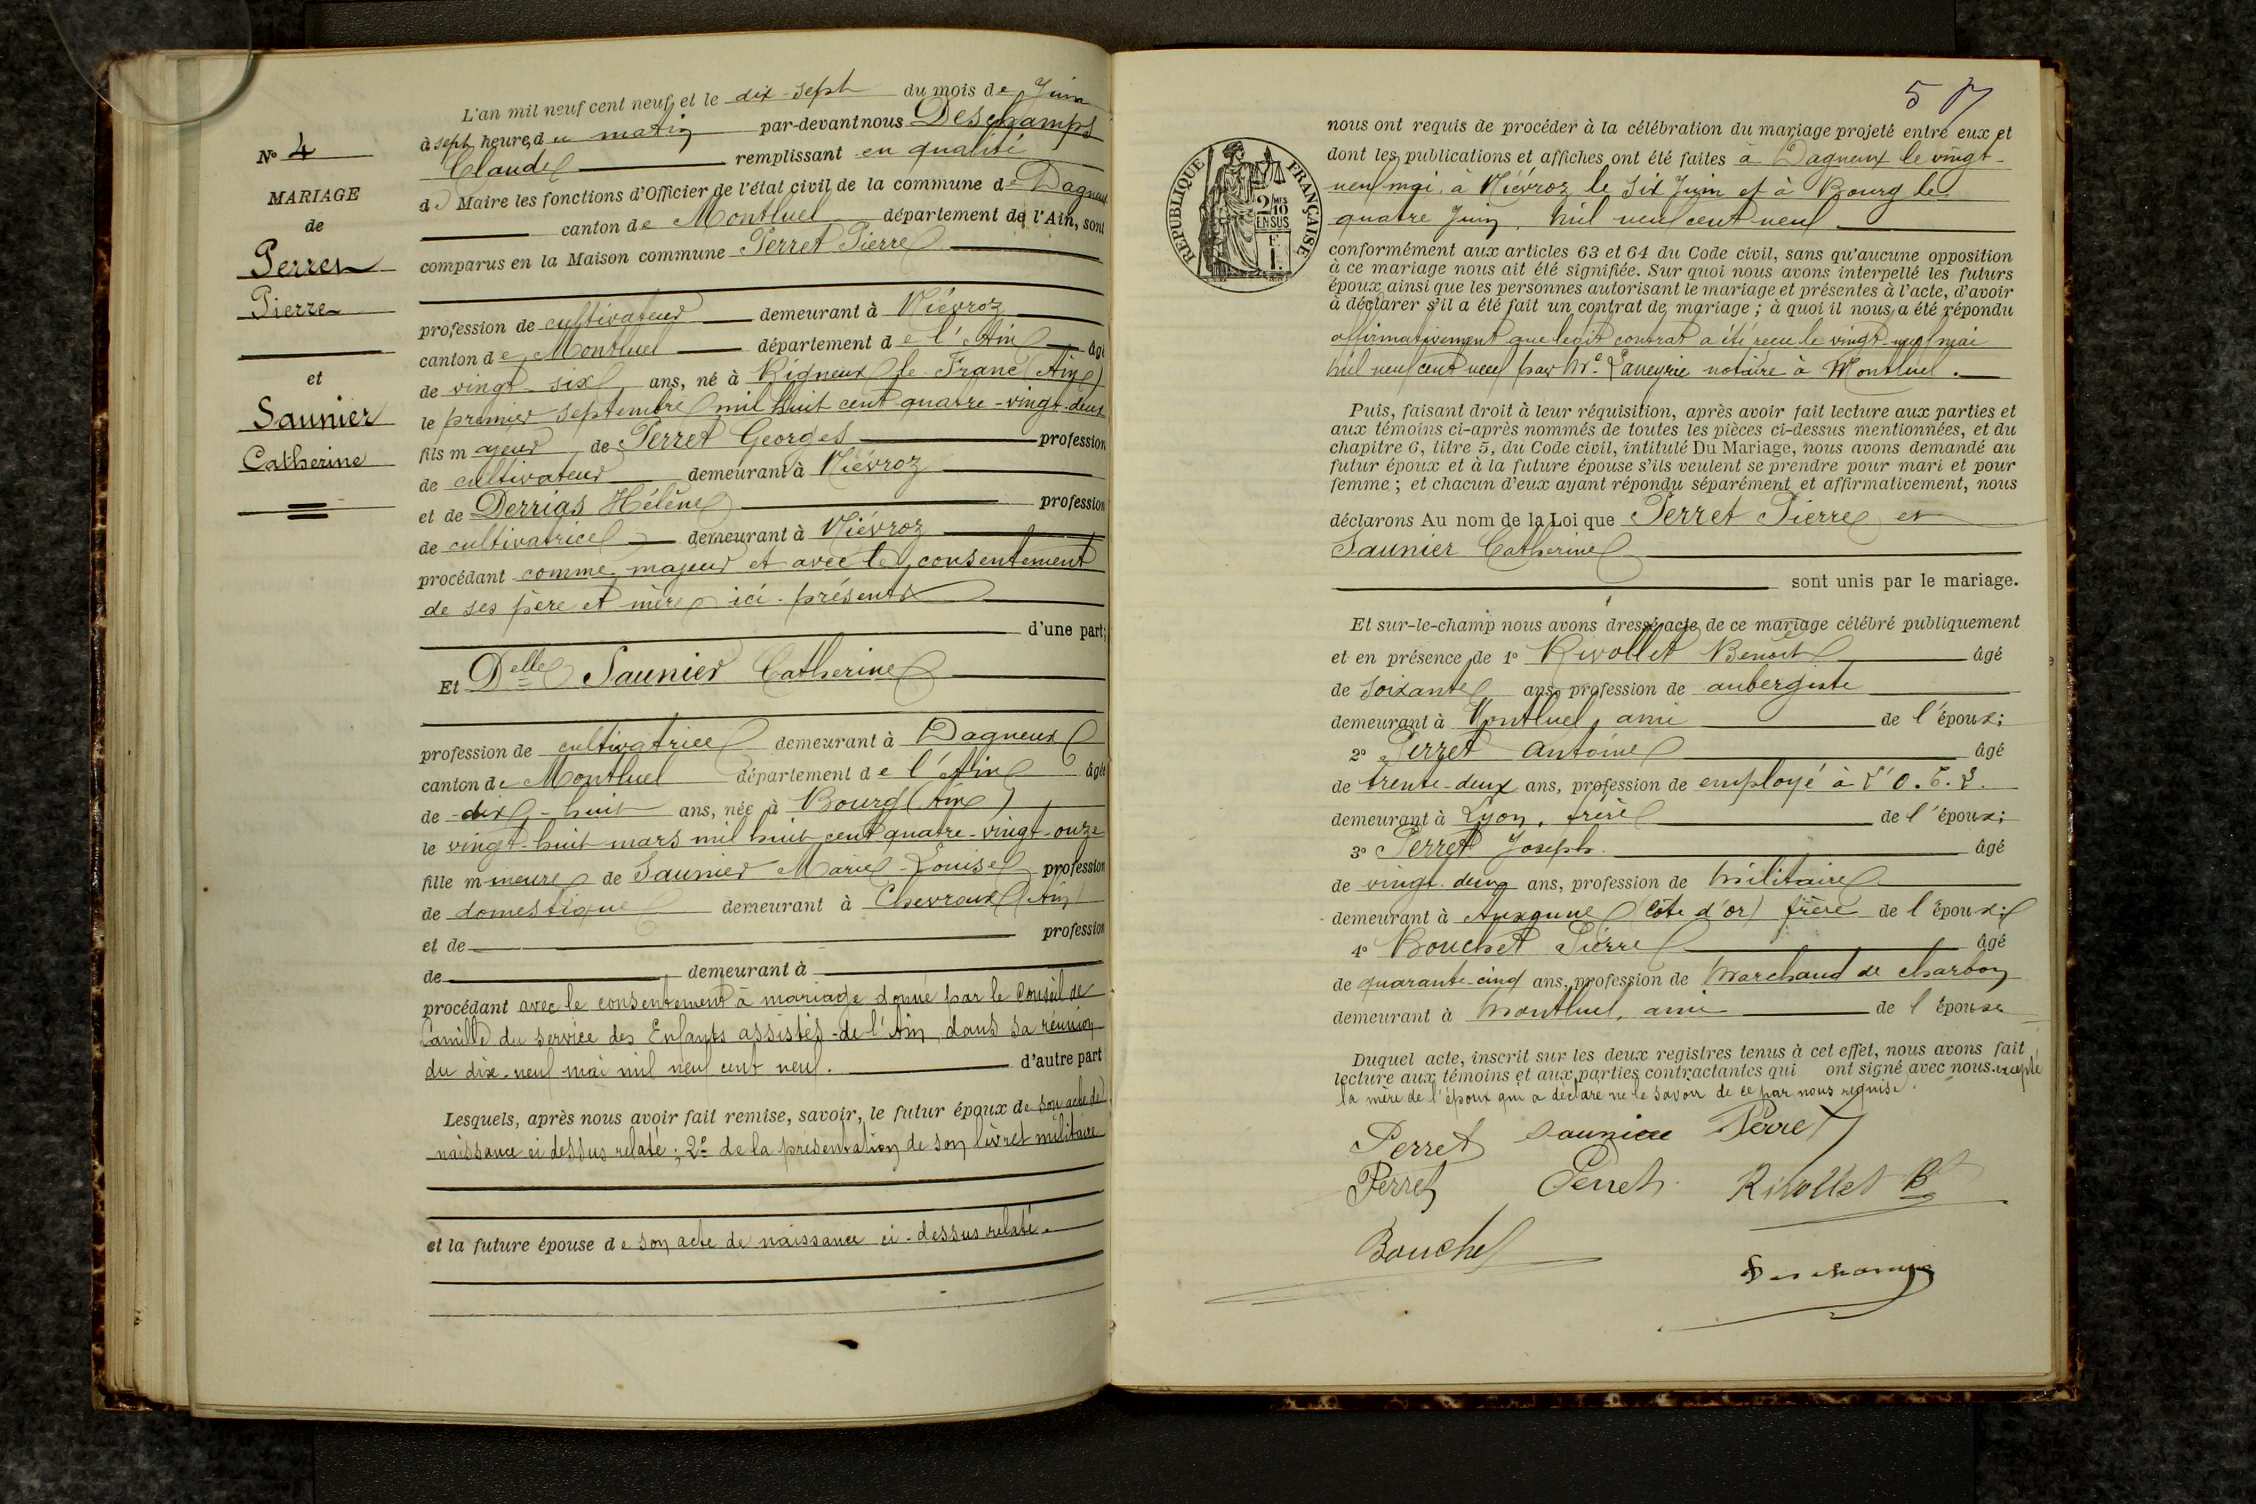 N° 4
MARIAGE
de
Perret
Pierre
et
Saunier
Catherine
L'an mil neuf cent neuf et le dix-sept du mois de Juin
à sept heures du matin par-devant nous Deschamps
Claude remplissant en qualité
de Maire les fonctions d'Officier de l'état civil de la commune de Dagneux
canton de Montluel département de l'Ain, sont
comparus en la Maison commune Perret Pierre
profession de cultivateur demeurant à Niévroz
canton de Montluel département de l'Ain âgé
de vingt-six ans, né à Rigneux le Franc (Ain)
le premier septembre mil huit cent quatre-vingt-deux
fils majeur de Perret Georges profession
de cultivateur demeurant à Niévroz
et de Derrias Hélène profession
de cultivatrice demeurant à Niévroz
procédant comme majeur et avec le consentement
de ses père et mère ici présents
d'une part;
Et Delle Saunier Catherine
profession de cultivatrice demeurant à Dagneux
canton de Montluel département de l'Ain âgée
de dix-huit ans, née à Bourg (Ain)
le vingt-huit mars mil huit cent quatre-vingt-onze
fille mineure de Saunier Marie-Louise profession
de domestique demeurant à Chevroux (Ain)
et de profession
de demeurant à
procédant avec le consentement à mariage donné par le Conseil de
famille du service des Enfants assistés de l'Ain, dans sa réunion
du dix-neuf mai mil neuf cent neuf. d'autre part
Lesquels, après nous avoir fait remise, savoir, le futur époux de son acte de
naissance ci dessus relaté; 2° de la présentation de son livret militaire
et la future épouse de son acte de naissance ci-dessus relaté.
57
RÉPUBLIQUE FRANÇAISE
2/10 EN SUS
F
1
nous ont requis de procéder à la célébration du mariage projeté entre eux et
dont les publications et affiches ont été faites à Dagneux le vingt-
neuf mai, à Niévroz le six Juin et à Bourg le
quatre Juin mil neuf cent neuf
conformément aux articles 63 et 64 du Code civil, sans qu'aucune opposition
à ce mariage nous ait été signifiée. Sur quoi nous avons interpellé les futurs
époux ainsi que les personnes autorisant le mariage et présentes à l'acte, d'avoir
à déclarer s'il a été fait un contrat de mariage; à quoi il nous a été répondu
affirmativement que ledit contrat a été reçu le vingt-neuf mai
mil neuf cent neuf par Me Laneyrie notaire à Montluel.
Puis, faisant droit à leur réquisition, après avoir fait lecture aux parties et
aux témoins ci-après nommés de toutes les pièces ci-dessus mentionnées, et du
chapitre 6, titre 5, du Code civil, intitulé Du Mariage, nous avons demandé au
futur époux et à la future épouse s'ils veulent se prendre pour mari et pour
femme; et chacun d'eux ayant répondu séparément et affirmativement, nous
déclarons Au nom de la Loi que Perret Pierre et
Saunier Catherine
sont unis par le mariage.
Et sur-le-champ nous avons dressé acte de ce mariage célébré publiquement
et en présence de 1° Rivollet Benoit âgé
de soixante ans, profession de aubergiste
demeurant à Montluel, ami de l'époux;
2° Perret Antoine âgé
de trente-deux ans, profession de employé à l'O.T.L.
demeurant à Lyon, frère de l'époux;
3° Perret Joseph âgé
de vingt-deux ans, profession de militaire
demeurant à Auxonne (Côte d'or) frère de l'époux;
4° Bouchet Pierre âgé
de quarante-cinq ans, profession de Marchand de charbon
demeurant à Montluel, ami de l'épouse
Duquel acte, inscrit sur les deux registres tenus à cet effet, nous avons fait
lecture aux témoins et aux parties contractantes qui ont signé avec nous excepté
la mère de l'époux qui a déclaré ne le savoir de ce par nous requise.
Perret Saunier Perret
Perret Perret Rivollet Bt
Bouchet
Deschamps